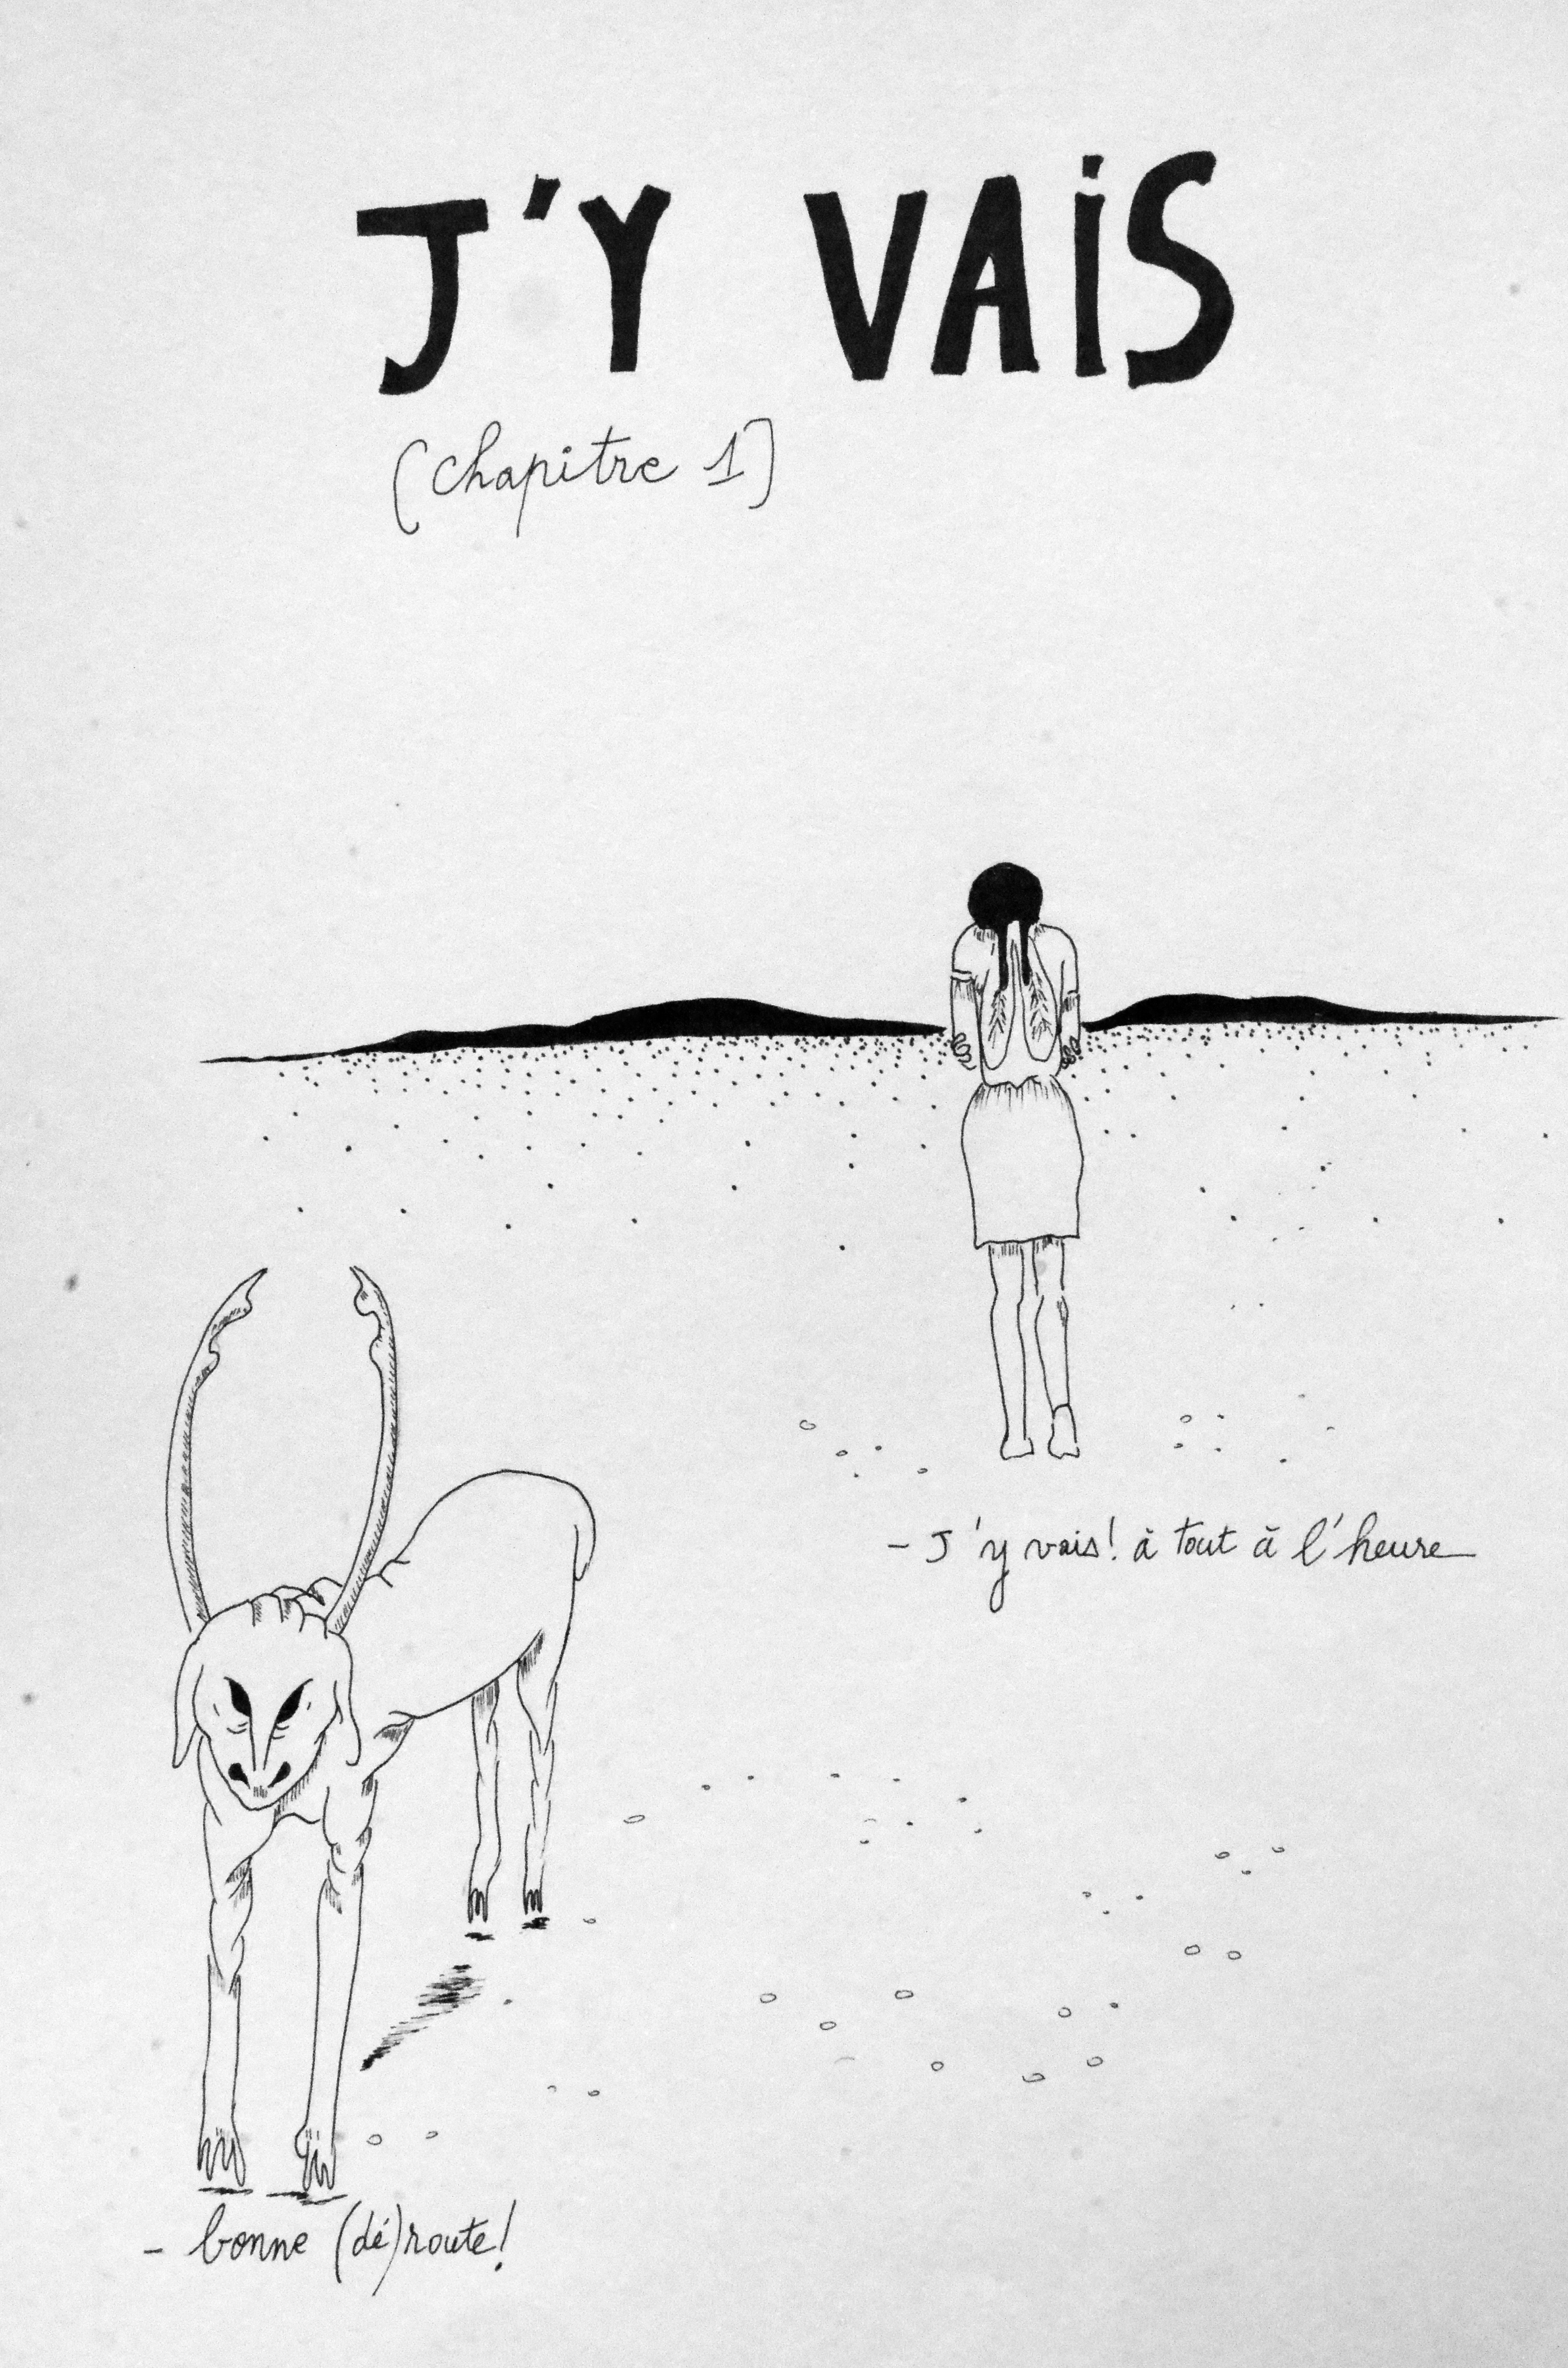 J'Y VAiS
(chapitre 1)
- J'y vais! à tout à l'heure
- bonne (dé)route!